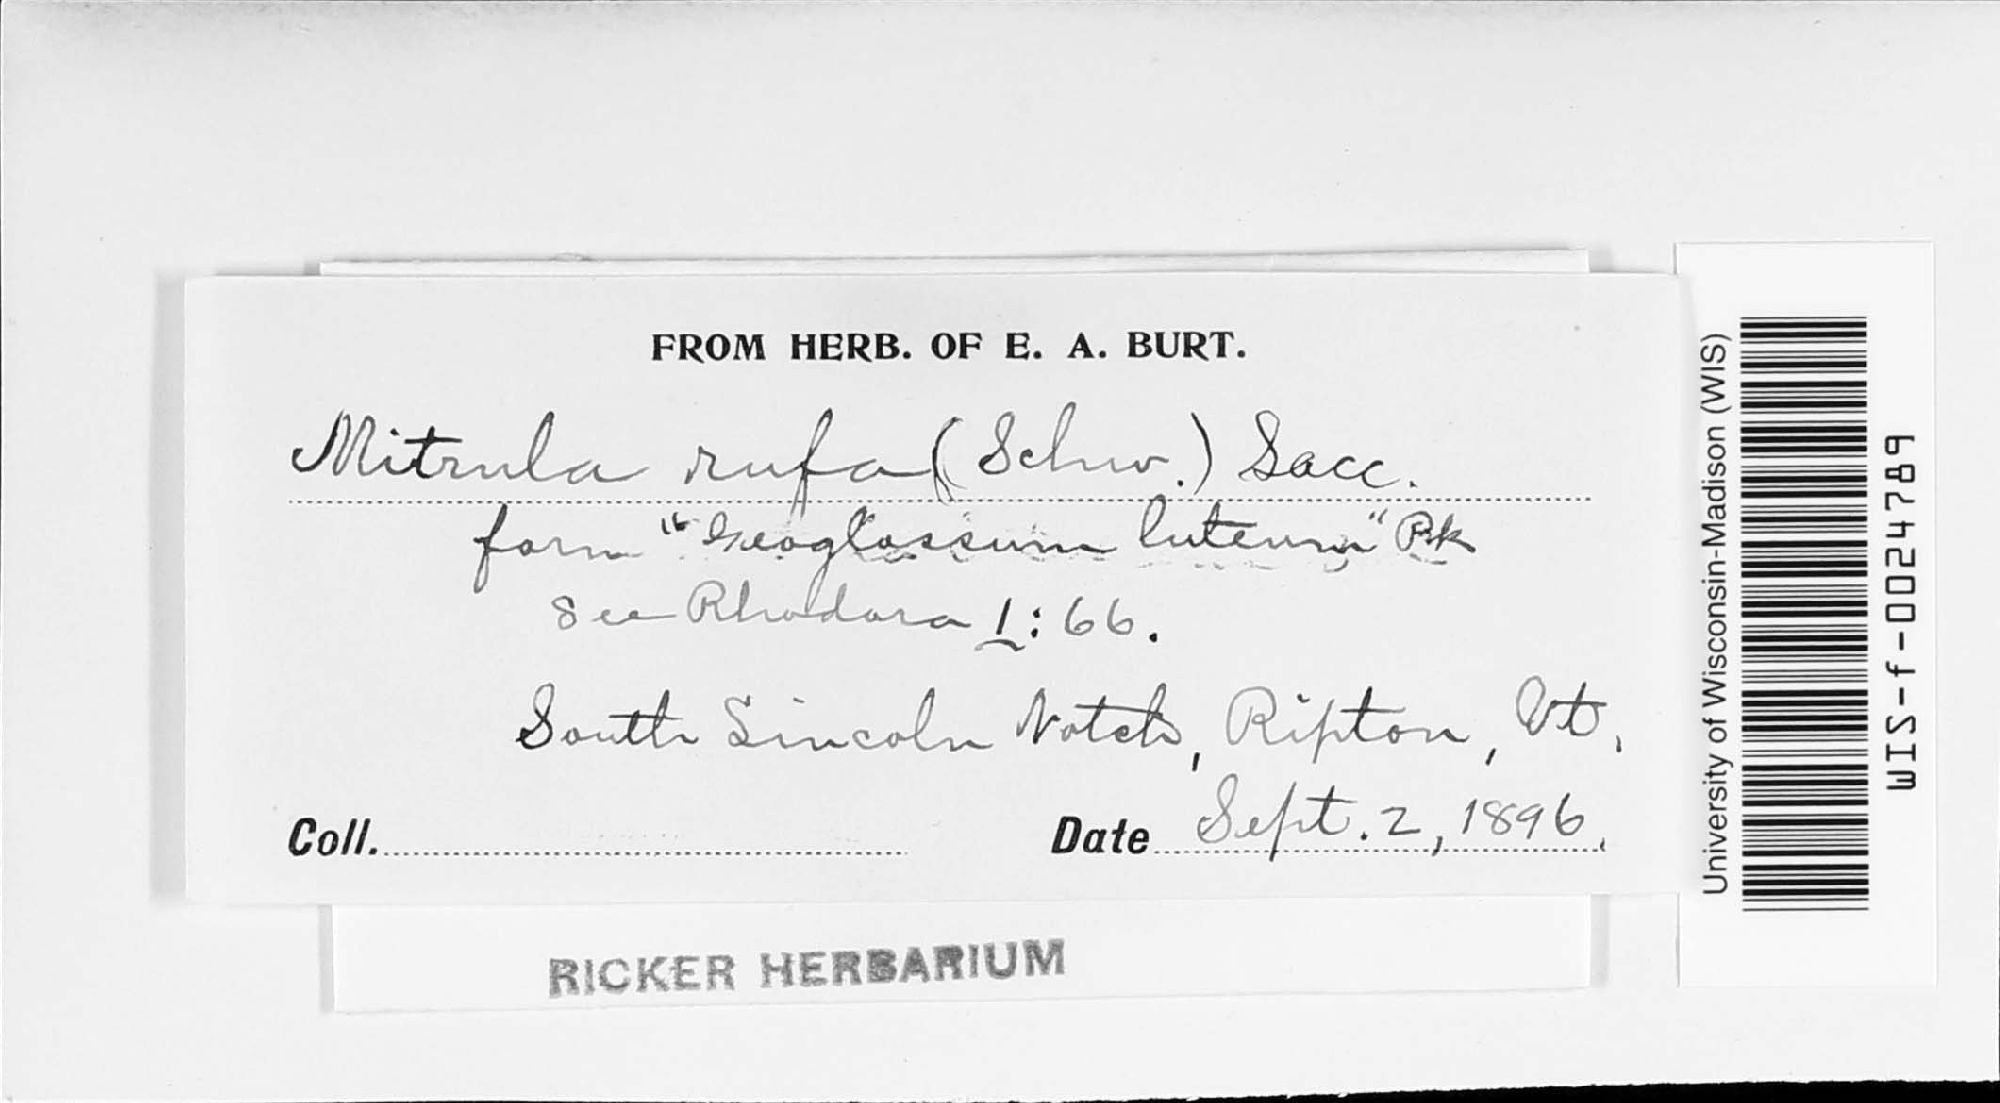 FROM HERB. OF E. A. BURT.
Mitrula rufa (Schw.) Sacc.
form "Geoglossum luteum" Pk
See Rhodora 1:66.
South Lincoln Notch, Ripton, Vt.
Coll. Date Sept. 2, 1896.
RICKER HERBARIUM
University of Wisconsin-Madison (WIS)
WIS-f-0024789